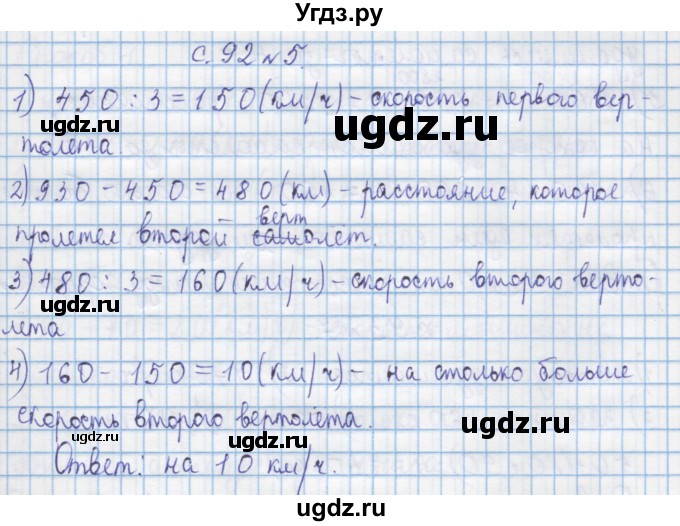 Угдз.ру
с. 92 №5.
1) 450 : 3 = 150 (км/ч) - скорость первого вер-
толета.
2) 930 - 450 = 480 (км) - расстояние, которое
верт
пролетел второй самолет.
3) 480 : 3 = 160 (км/ч) - скорость второго верто-
лета
4) 160 - 150 = 10 (км/ч) - на столько больше
скорость второго вертолета.
Ответ: на 10 км/ч.
ugdz.ru
ugdz.ru
ugdz.ru
ugdz.ru
ugdz.ru
ugdz.ru
ugdz.ru
ugdz.ru
ugdz.ru
ugdz.ru